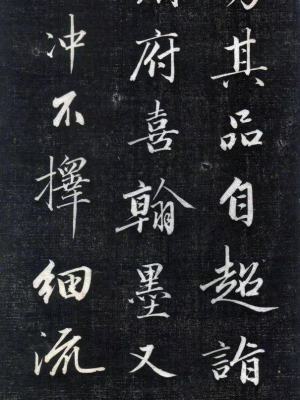 其品自超詣
府喜翰墨又
冲不擇細流